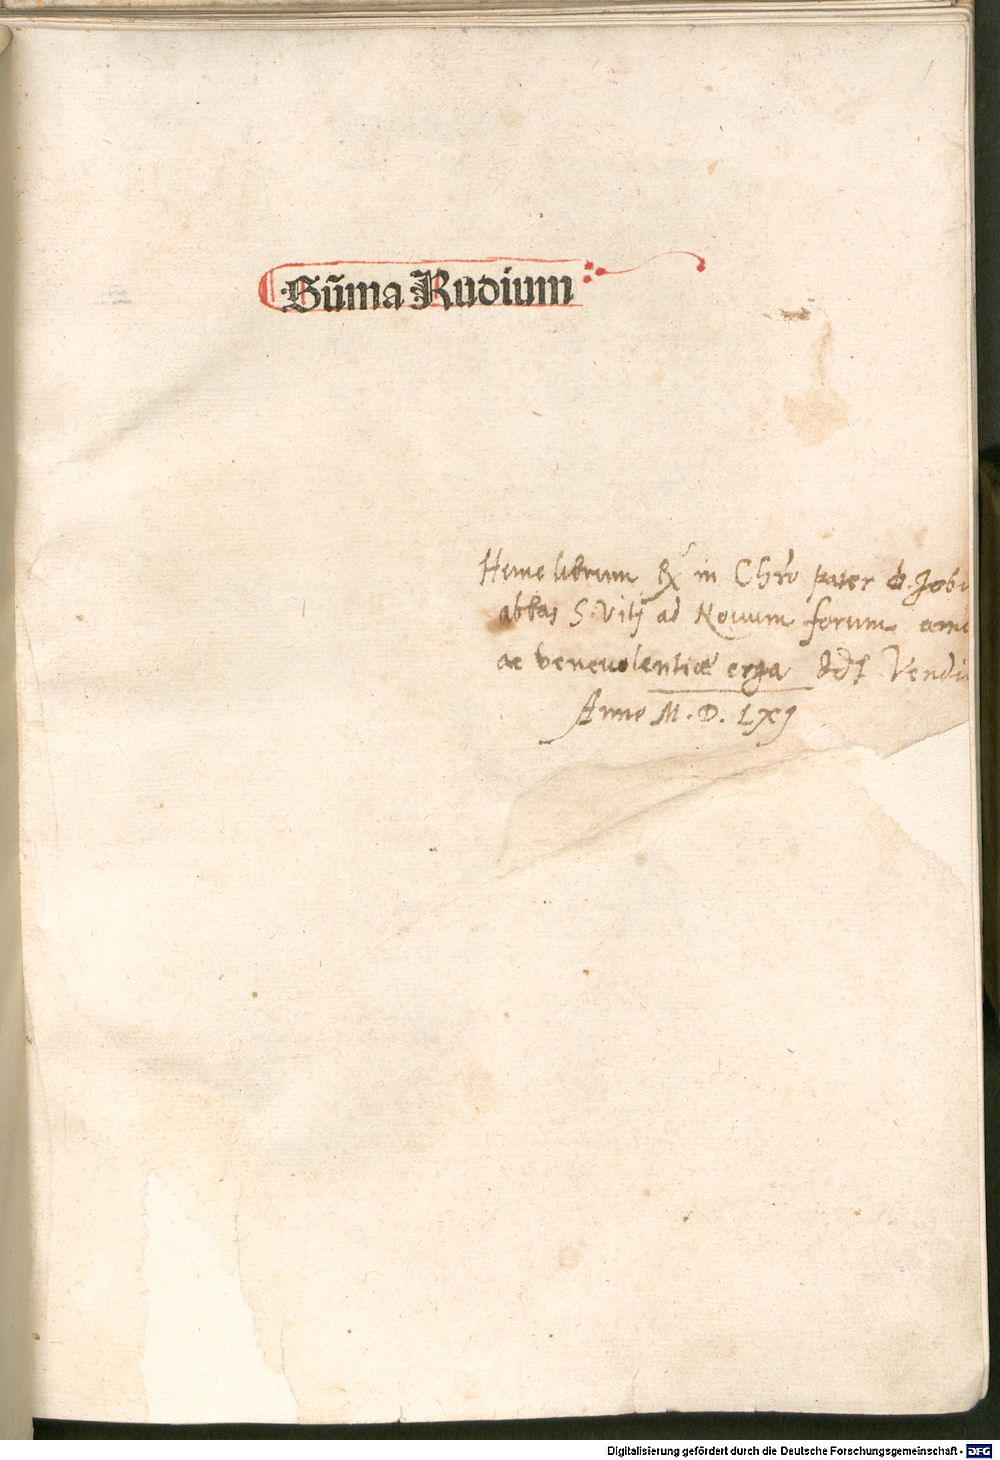 Sūma Rudium
Hunc librum R in Chro pater d. Joh
abbas S. Viti ad Novum forum amo
ac benevolentiæ erga ddt Vendi
Anno M. D. LXJ
Digitalisierung gefördert durch die Deutsche Forschungsgemeinschaft - DFG